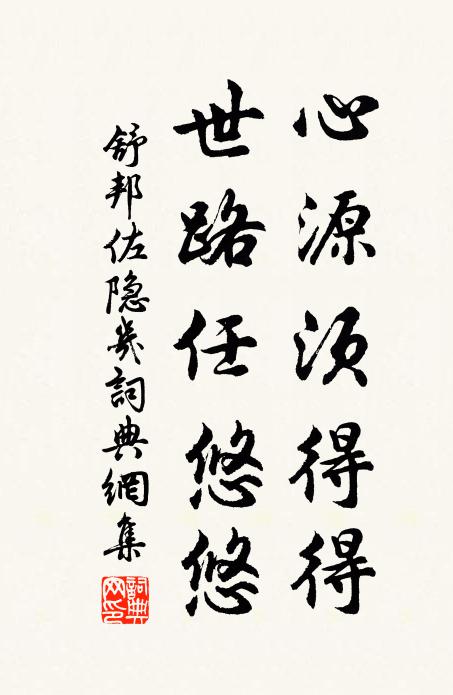 心源须得得
世路任悠悠
舒邦佐隐几詞典網集
詞典网印